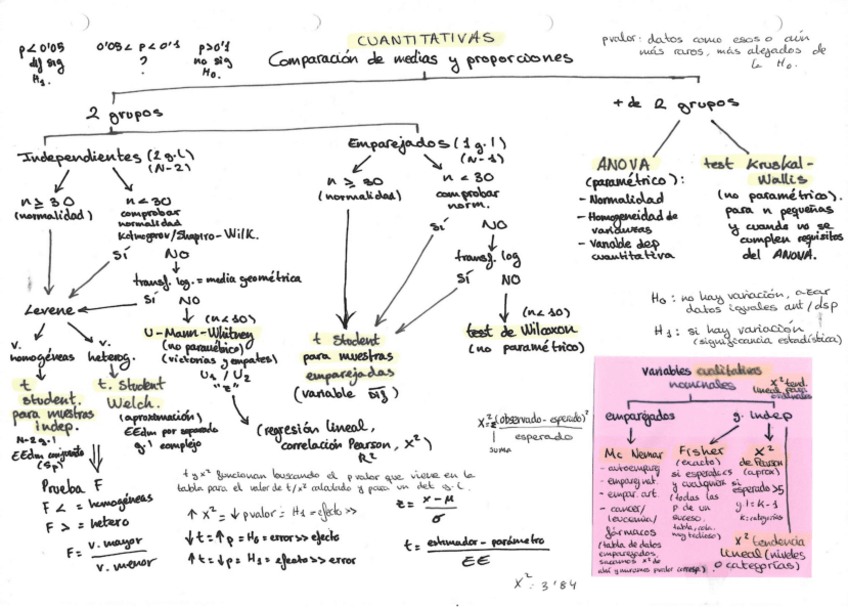 CUANTITATIVAS
Comparación de medias y proporciones
p < 0'05
dif sig
H₁.
0'05 < p < 0'1
?
p>0'1
no sig
H₀.
pvalor: datos como esos o aún
más raros, más alejados de
la H₀.
2 grupos
+ de 2 grupos
Independientes (2 g.l)
(N-2)
n ≥ 30
(normalidad)
n < 30
comprobar
normalidad
Kolmogrov/Shapiro-Wilk.
Sí NO
transf. log. = media geométrica
Sí NO
Levene
v.
homogéneas
v.
heterog.
t
student.
para muestras
indep.
N-2 g.l
EEdm conjunto
(Sp)
t. Student
Welch.
(aproximación)
EEdm por separado
g.l complejo
Prueba F
F < = homogéneas
F > = hetero
F = v. mayor
v. menor
(n<10)
U-Mann-Whitney
(no paramétrico)
(victorias y empates)
U₁ / U₂
"z"
(regresión lineal,
correlación Pearson, X²)
R²
Emparejados (1 g.l)
(N-1)
n ≥ 30
(normalidad)
n < 30
comprobar
norm.
Sí NO
transf. log
Sí NO
t Student
para muestras
emparejadas
(variable Dif)
(n<10)
test de Wilcoxon
(no paramétrico)
ANOVA
(paramétrico):
- Normalidad
- Homogeneidad de
varianzas
- Variable dep
cuantitativa
test Kruskal-
Wallis
(no paramétrico).
para n pequeñas
y cuando no se
cumplen requisitos
del ANOVA.
H₀: no hay variación, azar
datos iguales ant/dsp
H₁: si hay variación
(significancia estadística)
X² = Σ (observado - esperado)²
esperado
suma
t y X² funcionan buscando el p valor que viene en la
tabla para el valor de t/X² calculado y para un det g.l.
↑ X² = ↓ pvalor = H₁ = efecto >>
↓ t = ↑ p = H₀ = error >> efecto
↑ t = ↓ p = H₁ = efecto >> error
z = x - μ
σ
t = estimador - parámetro
EE
X²: 3'84
variables cualitativas
nominales
X² tend.
lineal para
ordinales
emparejados
g. Indep
Mc Nemar
- autoemparej
- emparej nat.
- empar. art.
- cancer/
leucemia/
fármacos
(tabla de datos
emparejados,
sacamos X² de
ahí y miramos pvalor corresp.)
Fisher
(exacto)
si esperado ≤5
y cualquiera
(todas las
p de un
suceso.
muy tedioso)
X²
de Pearson
(aprox)
si
esperado >5
g.l = k-1
k = categorías
X² tendencia
lineal (niveles
o categorías)